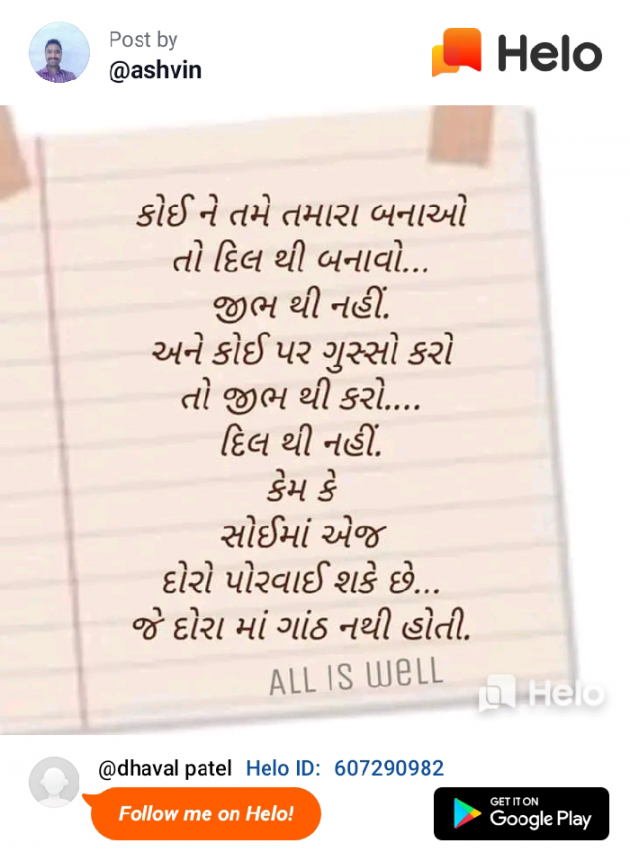 Post by
@ashvin
Helo
કોઈ ને તમે તમારા બનાઓ
તો દિલ થી બનાવો...
જીભ થી નહીં.
અને કોઈ પર ગુસ્સો કરો
તો જીભ થી કરો....
દિલ થી નહીં.
કેમ કે
સોઈમાં એજ
દોરો પોરવાઈ શકે છે...
જે દોરા માં ગાંઠ નથી હોતી.
ALL IS WeLL
Helo
@dhaval patel Helo ID: 607290982
Follow me on Helo!
GET IT ON
Google Play